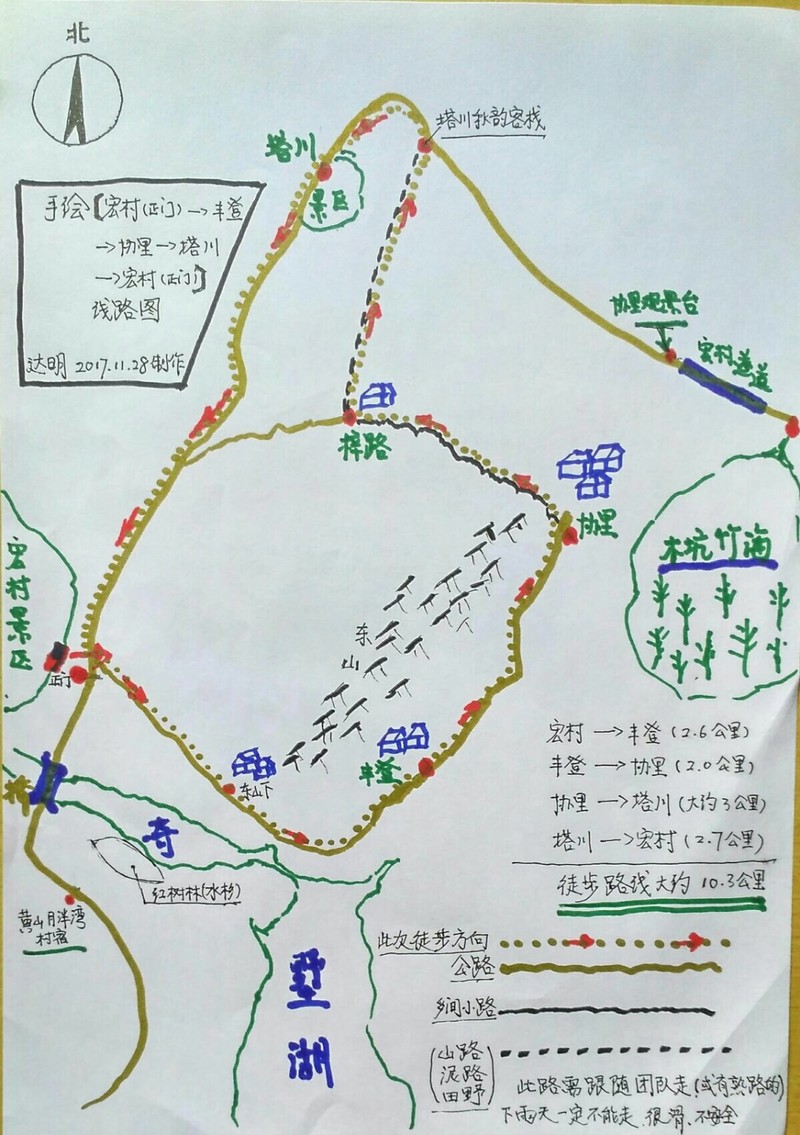 北
塔川秋韵客栈
塔川
景区
手绘[宏村(正门)→丰登
→协里→塔川
→宏村(正门)]
线路图
达明 2017.11.28制作
协里观景台
宏村遂道
梓路
协里
木坑竹海
宏村景区
正门
东山
丰登
东山下
桥
奇
墅湖
红树林(水杉)
黄山月胖湾
村宿
宏村→丰登(2.6公里)
丰登→协里(2.0公里)
协里→塔川(大约3公里)
塔川→宏村(2.7公里)
徒步路线大约10.3公里
此次徒步方向
公路
乡间小路
(山路
泥路
田野)
此路需跟随团队走(或有熟路的)
下雨天一定不能走.很滑、不安全